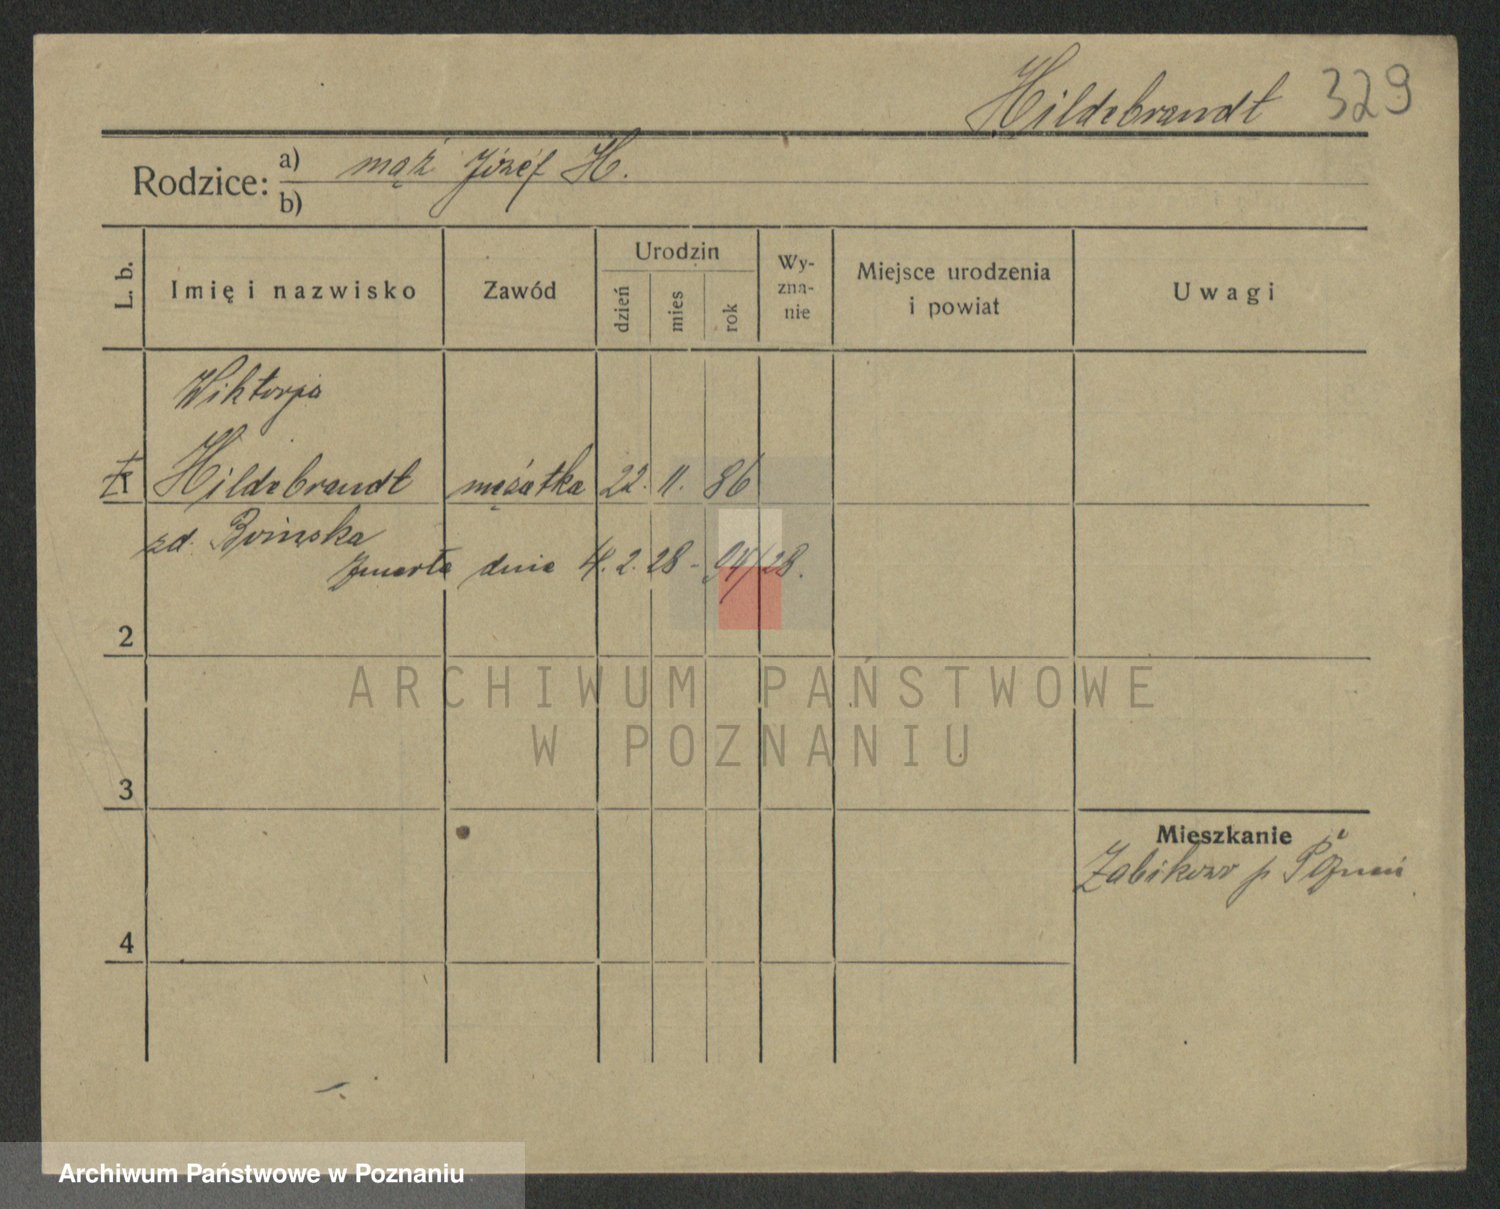 Hildebrandt 329
Rodzice: a) mąż Józef H.
b)
L. b.
Imię i nazwisko
Zawód
Urodzin
dzień
mies
rok
Wy-
zna-
nie
Miejsce urodzenia
i powiat
Uwagi
Wiktorja
1 Hildebrandt mężatka 22. 11. 86
zd.
zmarła dnia 4. 2. 28 - 94/28.
2
ARCHIWUM PAŃSTWOWE
W POZNANIU
3
Mieszkanie
Żabikowo p Poznań
4
Archiwum Państwowe w Poznaniu